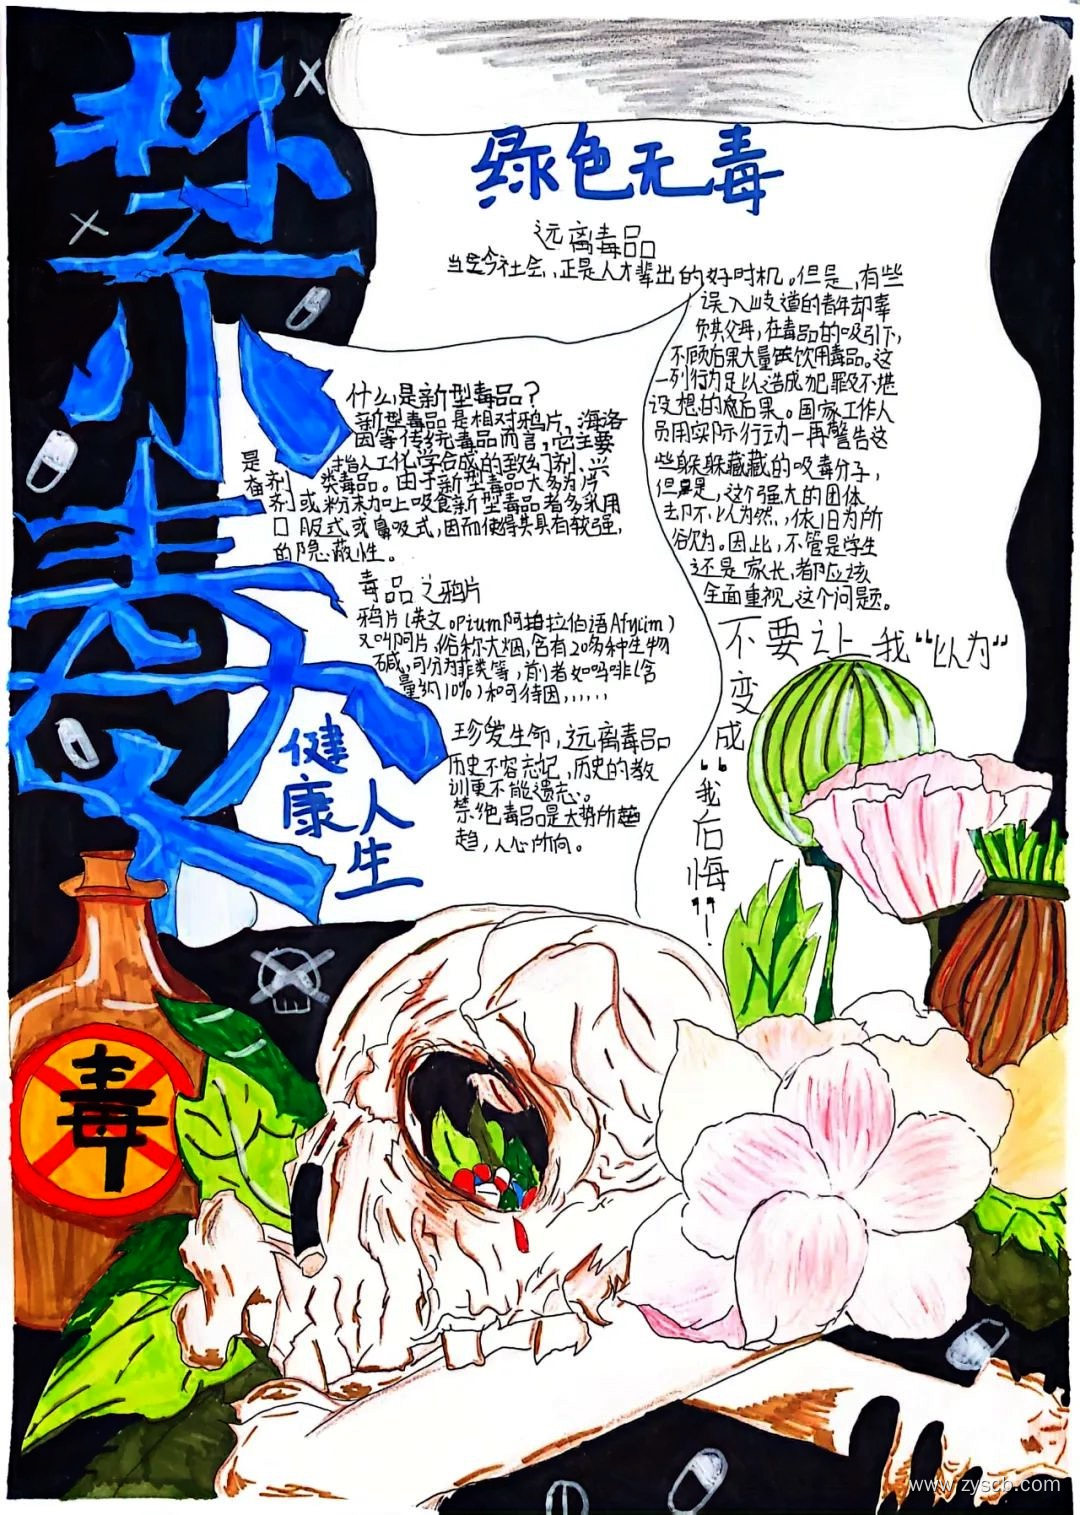 禁毒
绿色无毒
远离毒品
当今社会,正是人才辈出的好时机。但是,有些
误入歧道的青年却辜
负其父母,在毒品的吸引下,
不顾后果大量饮用毒品。这
一列行为足以造成犯罪及不堪
设想的后果。国家工作人
员用实际行动一再警告这
些躲躲藏藏的吸毒分子,
但是,这个强大的团体
却不以为然,依旧为所
欲为。因此,不管是学生
还是家长,都应该
全面重视这个问题。
什么是新型毒品?
新型毒品是相对鸦片,海洛
因等传统毒品而言,它主要
是指人工化学合成的致幻剂、兴
奋剂类毒品。由于新型毒品大多为片
剂或粉末加上吸食新型毒品者多采用
口服式或鼻吸式,因而使得其具有较强,
的隐蔽性。
毒品之鸦片
鸦片(英文opium阿拉伯语Afyuim)
又叫阿片,俗称大烟,含有20多种生物
碱,可分为菲类等,前者如吗啡(含
量约10%)和可待因,,,,,,
珍爱生命,远离毒品
历史不容忘记,历史的教
训更不能遗忘。
禁绝毒品是大势所
趋,人心所向。
健康
人生
不要让我“以为”
变成“我后悔”!
毒
www.zyscb.com